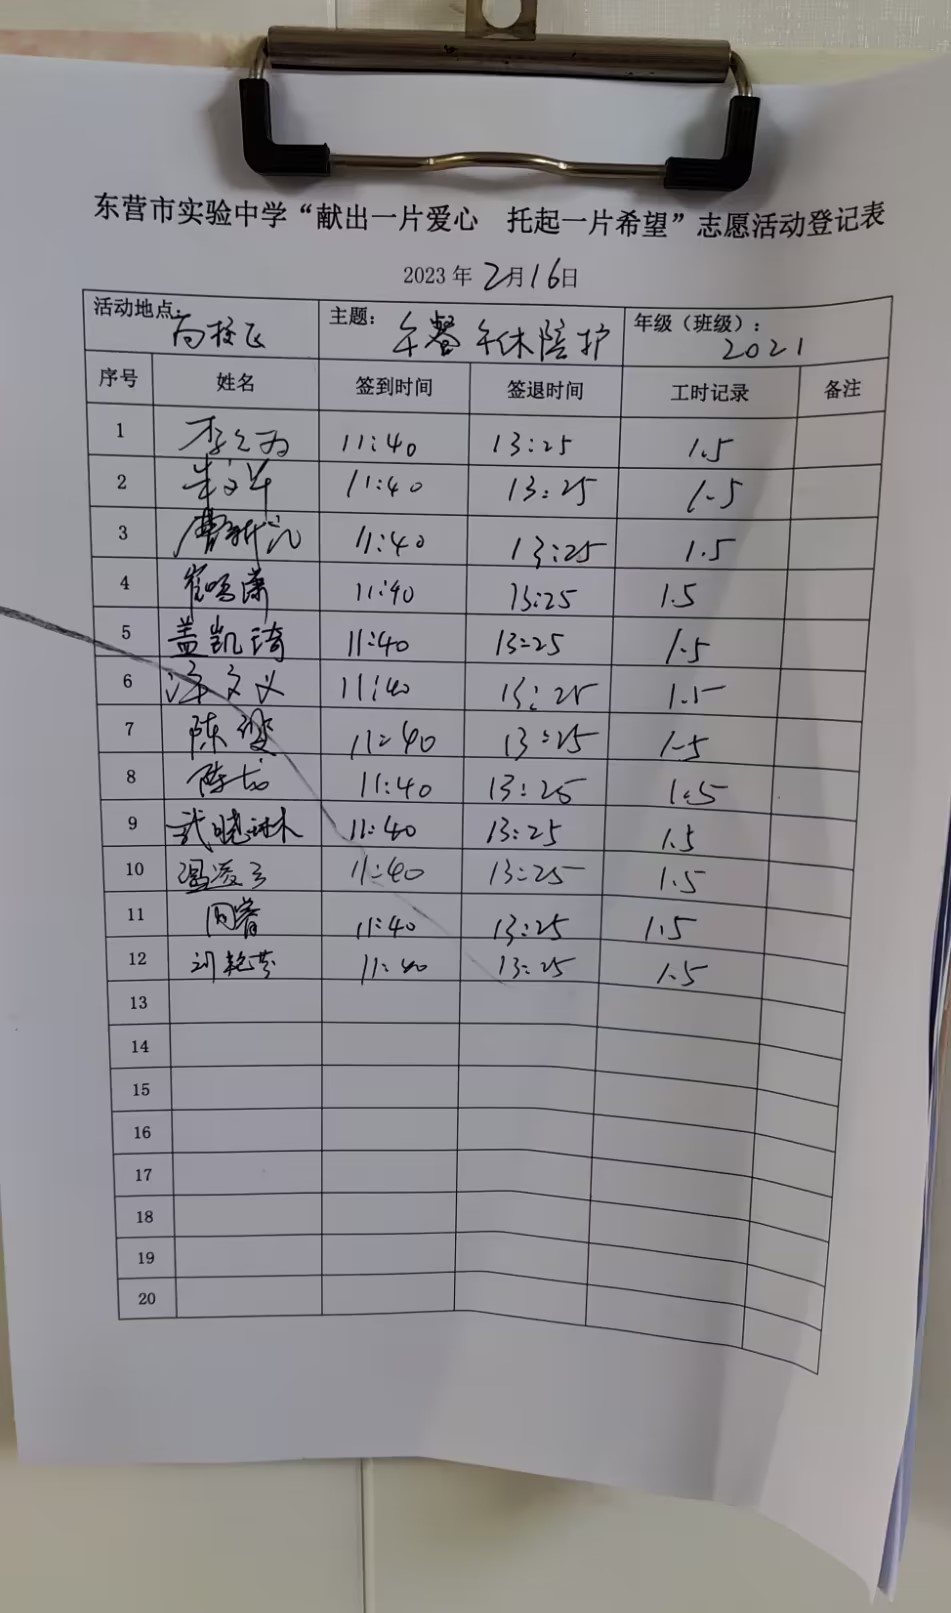 东营市实验中学“献出一片爱心 托起一片希望”志愿活动登记表
2023 年 2月16日
活动地点: 南校区 主题: 午餐午休陪护 年级(班级): 2021
序号 姓名 签到时间 签退时间 工时记录 备注
1 11:40 13:25 1.5
2 11:40 13:25 1.5
3 11:40 13:25 1.5
4 11:40 13:25 1.5
5 盖凯琦 11:40 13:25 1.5
6 11:40 13:25 1.5
7 陈雯 11:40 13:25 1.5
8 陈龙 11:40 13:25 1.5
9 武晓琳 11:40 13:25 1.5
10 温凌云 11:40 13:25 1.5
11 11:40 13:25 1.5
12 刘艳芬 11:40 13:25 1.5
13
14
15
16
17
18
19
20